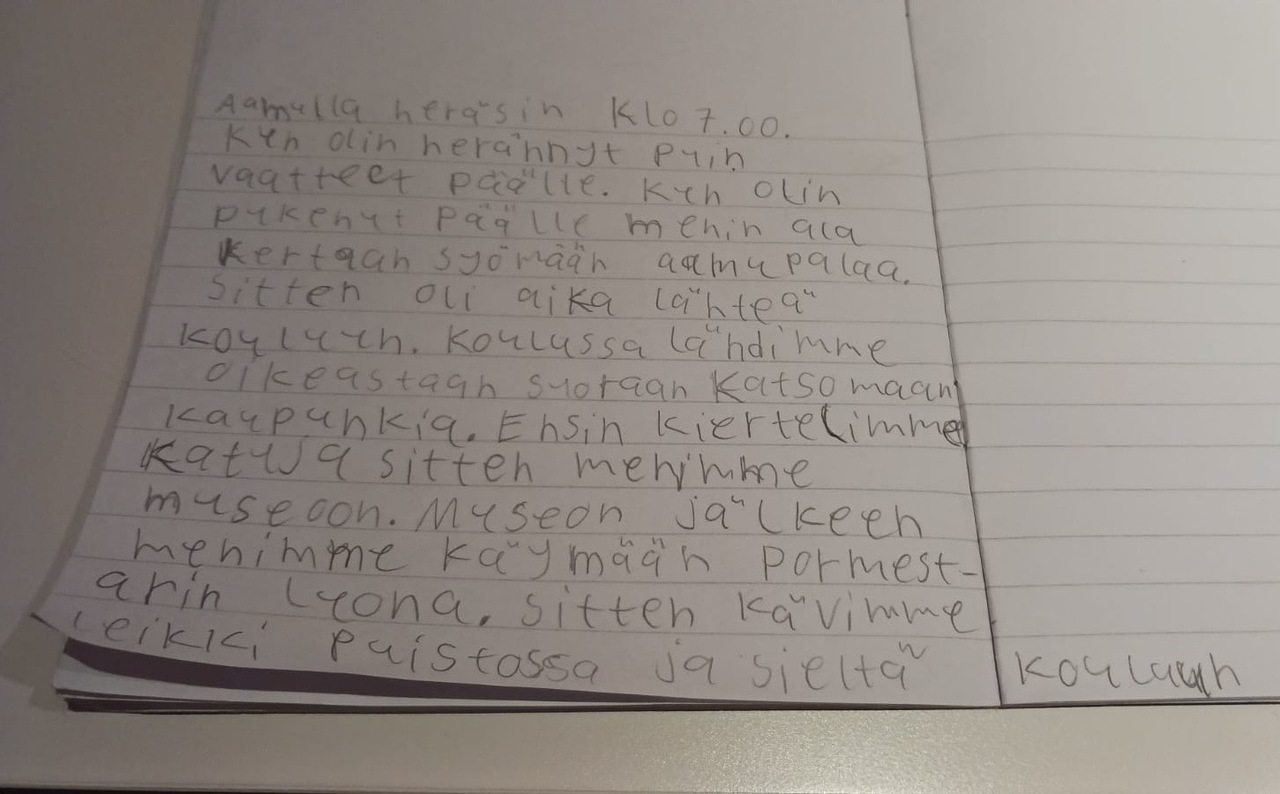 Aamulla heräsin Klo 7.00.
Kun olin herännyt puin
vaatteet päälle. Kun olin
pukenut päälle menin ala
kertaan syömään aamupalaa.
Sitten oli aika lähteä
kouluun. Koulussa lähdimme
oikeastaan suoraan katsomaan
kaupunkia. Ensin kiertelimme
katuja sitten menimme
museoon. Museon jälkeen
menimme käymään pormest-
arin luona. Sitten kävimme
leikki puistossa ja sieltä kouluun